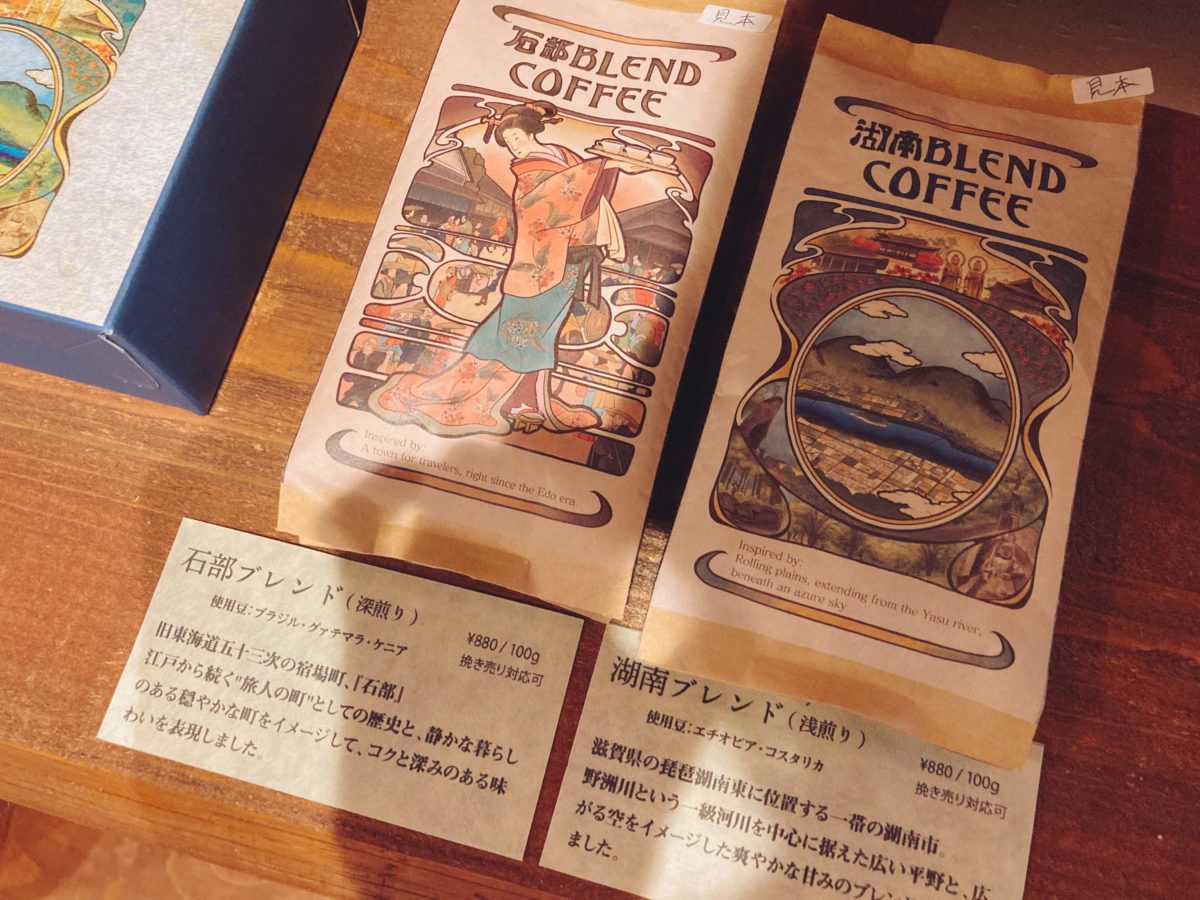 見本
石部BLEND
COFFEE
Inspired by:
A town for travelers, right since the Edo era.
見本
湖南BLEND
COFFEE
Inspired by:
Rolling plains, extending from the Yasu river,
beneath an azure sky
石部ブレンド(深煎り)
使用豆:ブラジル・グァテマラ・ケニア
¥880/100g
挽き売り対応可
旧東海道五十三次の宿場町、「石部」
江戸から続く"旅人の町"としての歴史と、静かな暮らし
のある穏やかな町をイメージして、コクと深みのある味
わいを表現しました。
湖南ブレンド(浅煎り)
使用豆:エチオピア・コスタリカ
¥880/100g
挽き売り対応可
滋賀県の琵琶湖南東に位置する一帯の湖南市。
野洲川という一級河川を中心に据えた広い平野と、広
がる空をイメージした爽やかな甘みのブレン
ました。